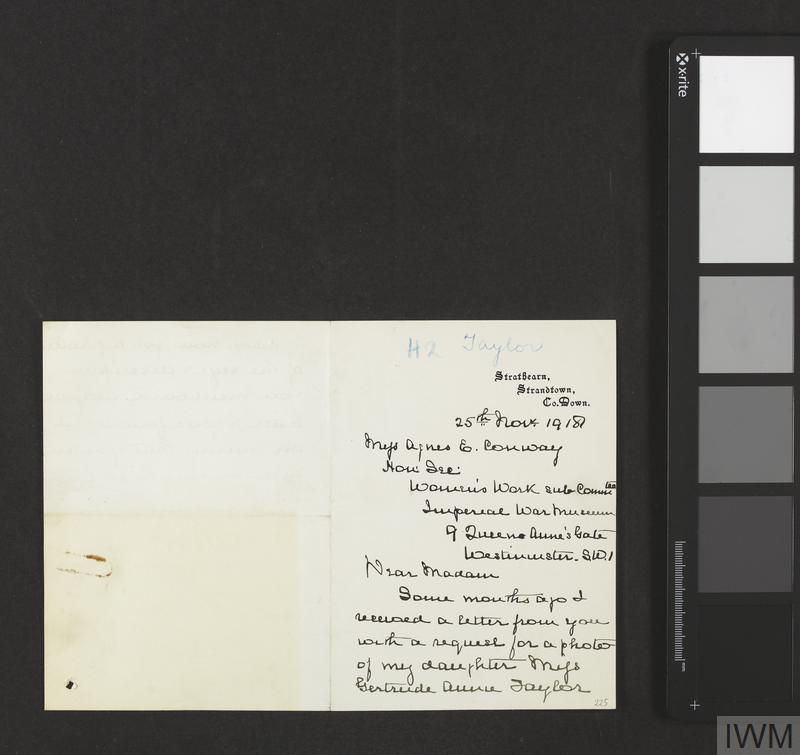 H2 Taylor
Strathearn,
Strandtown,
Co. Down.
25th Nov 1918
Miss Agnes E. Conway
Hon: Sec:
Women's Work sub Committee
Imperial War Museum
9 Queen Anne's Gate
Westminster. S.W.1
Dear Madam
Some months ago I
received a letter from you
with a request for a photo
of my daughter Miss
Gertrude Annie Taylor
225
x-rite
mm
IWM